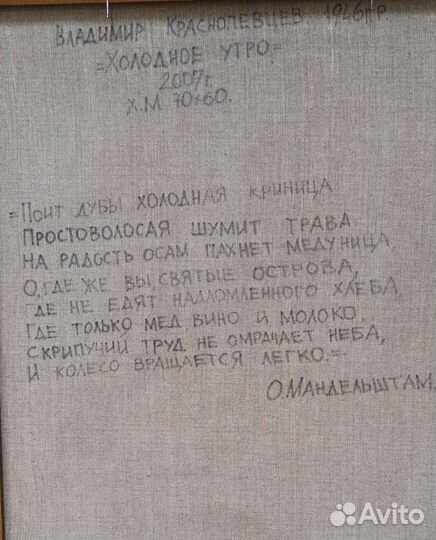 Владимир Краснопевцев 1946г.р.
=Холодное утро=
2007г.
Х.М 70х60.
=Поит дубы холодная криница
Простоволосая шумит трава
На радость осам пахнет медуница.
О, где же вы, святые острова,
Где не едят надломленного хлеба,
Где только мед вино и молоко.
Скрипучий труд не омрачает неба,
И колесо вращается легко.=
О.Мандельштам.
Avito